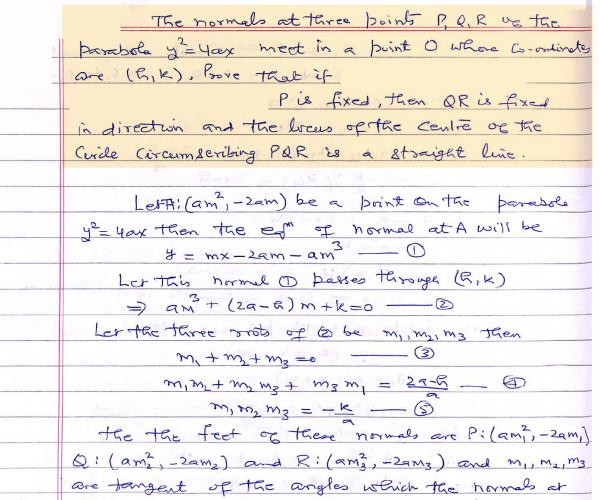 The normals at three points P, Q, R of the
parabola y²=4ax meet in a point O whose Co-ordinates
are (h,k), Prove that if
P is fixed, then QR is fixed
in direction and the locus of the centre of the
Circle Circumscribing PQR is a straight line.
Let A:(am², -2am) be a point on the parabola
y²=4ax then the eqⁿ of normal at A will be
y = mx-2am-am³ —— ①
Let this normal ① passes through (h,k)
⇒ am³+(2a-h)m+k=0 —— ②
Let the three roots of ② be m₁, m₂, m₃ then
m₁+m₂+m₃=0 —— ③
m₁m₂+m₂m₃+m₃m₁ = (2a-h)/a —— ④
m₁m₂m₃ = -k/a —— ⑤
the the feet of these normals are P:(am₁², -2am₁)
Q:(am₂², -2am₂) and R:(am₃², -2am₃) and m₁, m₂, m₃
are tangent of the angles which the normals at